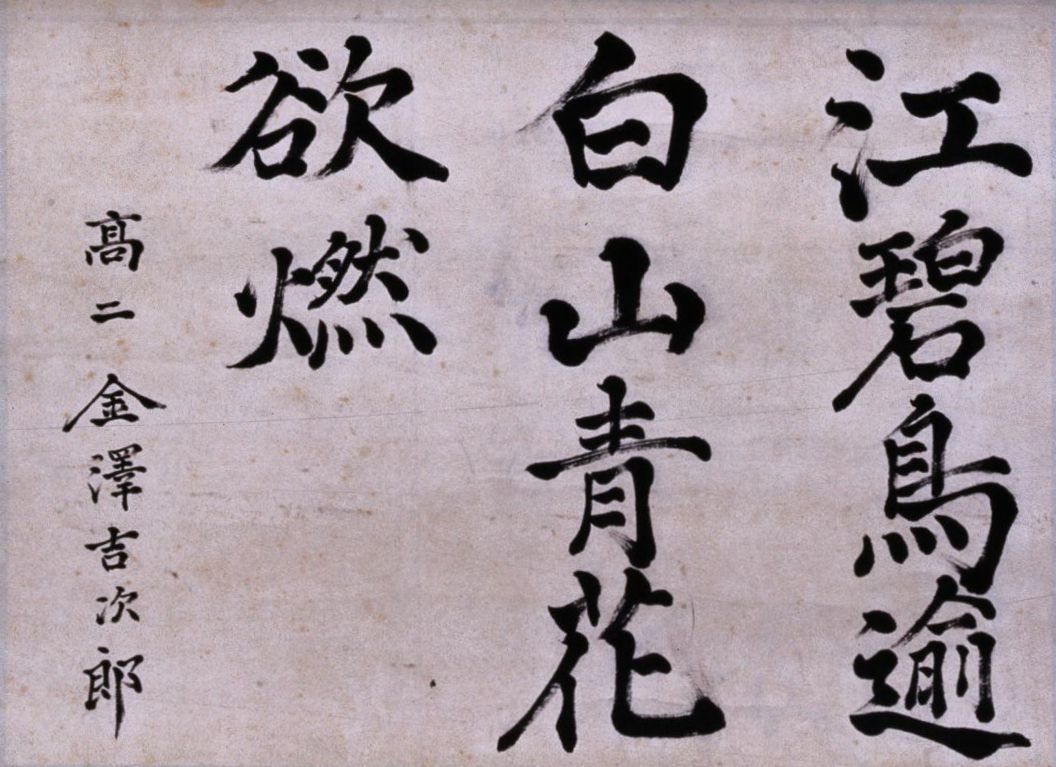 江碧鳥逾
白山青花
欲燃
高二金澤吉次郎